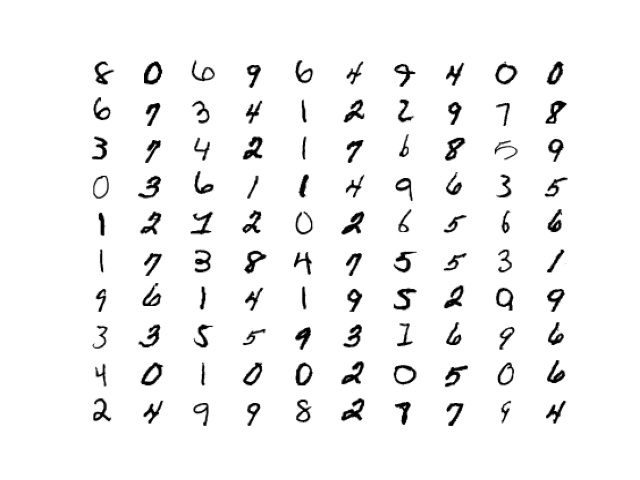 8 0 6 9 6 4 9 4 0 0
6 7 3 4 1 2 2 9 7 8
3 7 4 2 1 7 6 8 5 9
0 3 6 1 1 4 9 6 3 5
1 2 1 2 0 2 6 5 6 6
1 7 3 8 4 7 5 5 3 1
9 6 1 4 1 9 5 2 9 9
3 3 5 5 9 3 1 6 9 6
4 0 1 0 0 2 0 5 0 6
2 4 9 9 8 2 7 7 9 4